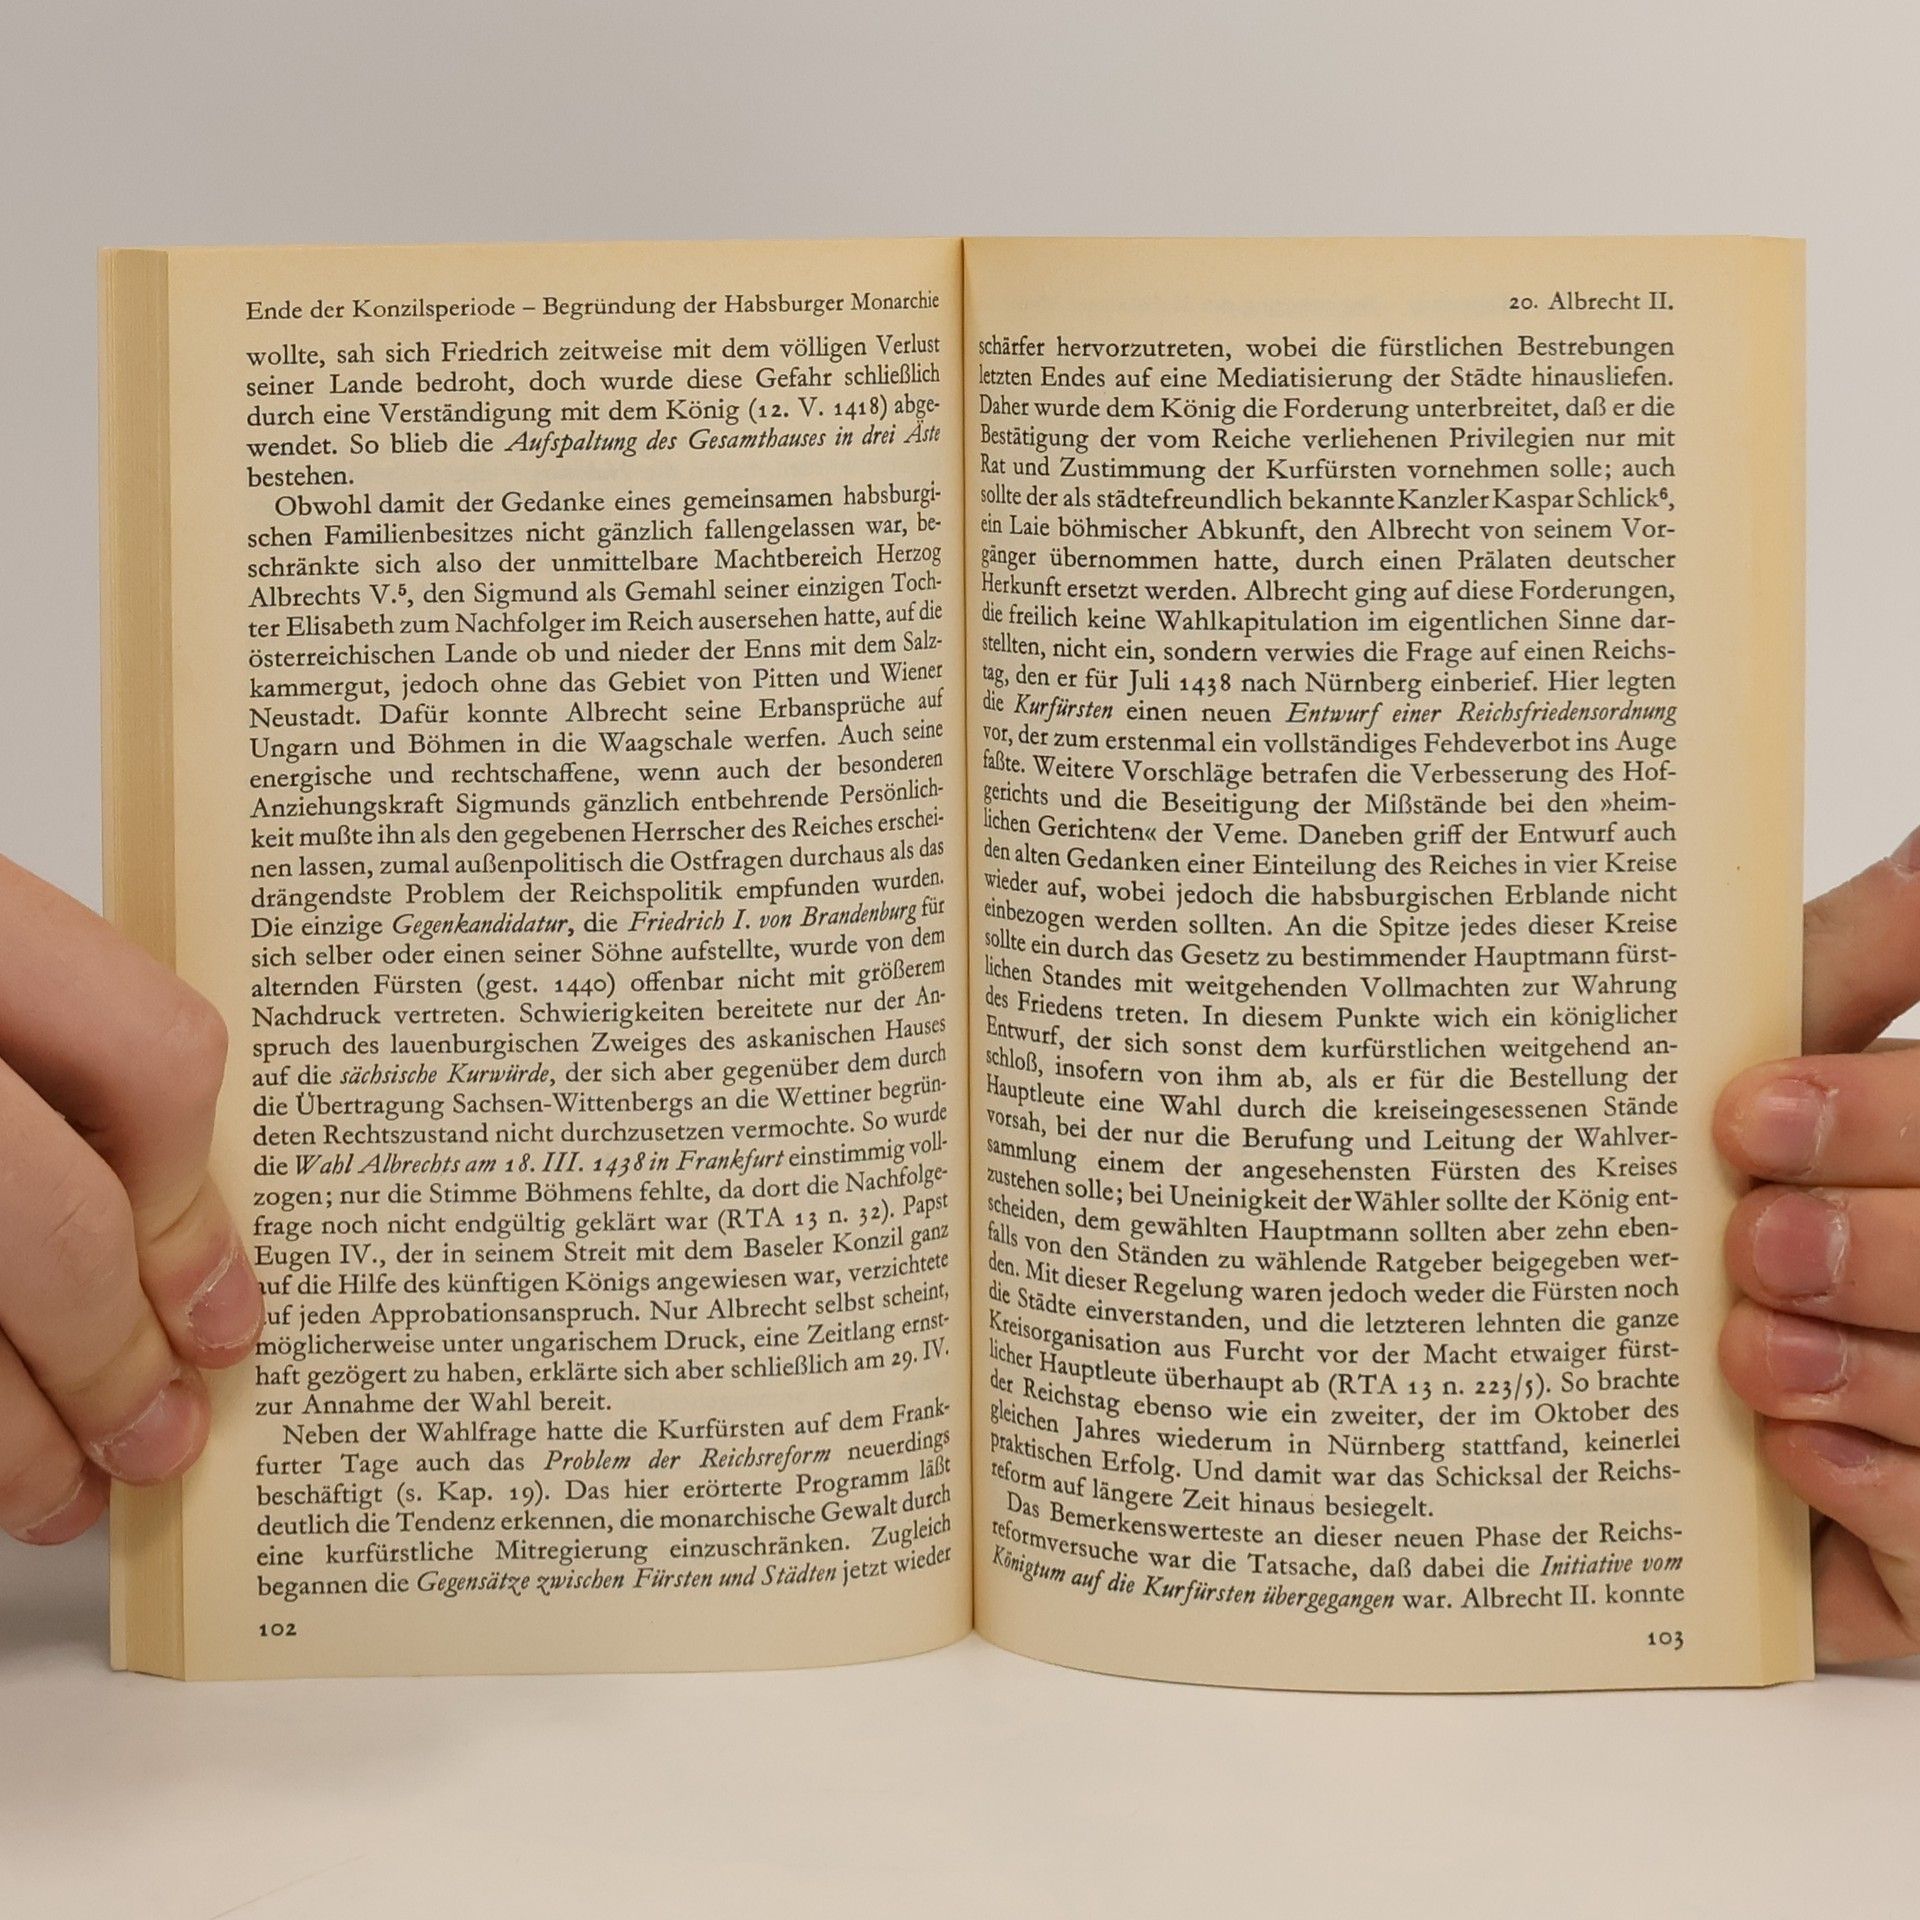 Ende der Konzilsperiode – Begründung der Habsburger Monarchie
wollte, sah sich Friedrich zeitweise mit dem völligen Verlust
seiner Lande bedroht, doch wurde diese Gefahr schließlich
durch eine Verständigung mit dem König (12. V. 1418) abge-
wendet. So blieb die Aufspaltung des Gesamthauses in drei Äste
bestehen.
Obwohl damit der Gedanke eines gemeinsamen habsburgi-
schen Familienbesitzes nicht gänzlich fallengelassen war, be-
schränkte sich also der unmittelbare Machtbereich Herzog
Albrechts V.⁵, den Sigmund als Gemahl seiner einzigen Toch-
ter Elisabeth zum Nachfolger im Reich ausersehen hatte, auf die
österreichischen Lande ob und nieder der Enns mit dem Salz-
kammergut, jedoch ohne das Gebiet von Pitten und Wiener
Neustadt. Dafür konnte Albrecht seine Erbansprüche auf
Ungarn und Böhmen in die Waagschale werfen. Auch seine
energische und rechtschaffene, wenn auch der besonderen
Anziehungskraft Sigmunds gänzlich entbehrende Persönlich-
keit mußte ihn als den gegebenen Herrscher des Reiches erschei-
nen lassen, zumal außenpolitisch die Ostfragen durchaus als das
drängendste Problem der Reichspolitik empfunden wurden.
Die einzige Gegenkandidatur, die Friedrich I. von Brandenburg für
sich selber oder einen seiner Söhne aufstellte, wurde von dem
alternden Fürsten (gest. 1440) offenbar nicht mit größerem
Nachdruck vertreten. Schwierigkeiten bereitete nur der An-
spruch des lauenburgischen Zweiges des askanischen Hauses
auf die sächsische Kurwürde, der sich aber gegenüber dem durch
die Übertragung Sachsen-Wittenbergs an die Wettiner begrün-
deten Rechtszustand nicht durchzusetzen vermochte. So wurde
die Wahl Albrechts am 18. III. 1438 in Frankfurt einstimmig voll-
zogen; nur die Stimme Böhmens fehlte, da dort die Nachfolge-
frage noch nicht endgültig geklärt war (RTA 13 n. 32). Papst
Eugen IV., der in seinem Streit mit dem Baseler Konzil ganz
auf die Hilfe des künftigen Königs angewiesen war, verzichtete
auf jeden Approbationsanspruch. Nur Albrecht selbst scheint,
möglicherweise unter ungarischem Druck, eine Zeitlang ernst-
haft gezögert zu haben, erklärte sich aber schließlich am 29. IV.
zur Annahme der Wahl bereit.
Neben der Wahlfrage hatte die Kurfürsten auf dem Frank-
furter Tage auch das Problem der Reichsreform neuerdings
beschäftigt (s. Kap. 19). Das hier erörterte Programm läßt
deutlich die Tendenz erkennen, die monarchische Gewalt durch
eine kurfürstliche Mitregierung einzuschränken. Zugleich
begannen die Gegensätze zwischen Fürsten und Städten jetzt wieder
102
20. Albrecht II.
schärfer hervorzutreten, wobei die fürstlichen Bestrebungen
letzten Endes auf eine Mediatisierung der Städte hinausliefen.
Daher wurde dem König die Forderung unterbreitet, daß er die
Bestätigung der vom Reiche verliehenen Privilegien nur mit
Rat und Zustimmung der Kurfürsten vornehmen solle; auch
sollte der als städtefreundlich bekannte Kanzler Kaspar Schlick⁶,
ein Laie böhmischer Abkunft, den Albrecht von seinem Vor-
gänger übernommen hatte, durch einen Prälaten deutscher
Herkunft ersetzt werden. Albrecht ging auf diese Forderungen,
die freilich keine Wahlkapitulation im eigentlichen Sinne dar-
stellten, nicht ein, sondern verwies die Frage auf einen Reichs-
tag, den er für Juli 1438 nach Nürnberg einberief. Hier legten
die Kurfürsten einen neuen Entwurf einer Reichsfriedensordnung
vor, der zum erstenmal ein vollständiges Fehdeverbot ins Auge
faßte. Weitere Vorschläge betrafen die Verbesserung des Hof-
gerichts und die Beseitigung der Mißstände bei den »heim-
lichen Gerichten« der Veme. Daneben griff der Entwurf auch
den alten Gedanken einer Einteilung des Reiches in vier Kreise
wieder auf, wobei jedoch die habsburgischen Erblande nicht
einbezogen werden sollten. An die Spitze jedes dieser Kreise
sollte ein durch das Gesetz zu bestimmender Hauptmann fürst-
lichen Standes mit weitgehenden Vollmachten zur Wahrung
des Friedens treten. In diesem Punkte wich ein königlicher
Entwurf, der sich sonst dem kurfürstlichen weitgehend an-
schloß, insofern von ihm ab, als er für die Bestellung der
Hauptleute eine Wahl durch die kreiseingesessenen Stände
vorsah, bei der nur die Berufung und Leitung der Wahlver-
sammlung einem der angesehensten Fürsten des Kreises
zustehen solle; bei Uneinigkeit der Wähler sollte der König ent-
scheiden, dem gewählten Hauptmann sollten aber zehn eben-
falls von den Ständen zu wählende Ratgeber beigegeben wer-
den. Mit dieser Regelung waren jedoch weder die Fürsten noch
die Städte einverstanden, und die letzteren lehnten die ganze
Kreisorganisation aus Furcht vor der Macht etwaiger fürst-
licher Hauptleute überhaupt ab (RTA 13 n. 223/5). So brachte
der Reichstag ebenso wie ein zweiter, der im Oktober des
gleichen Jahres wiederum in Nürnberg stattfand, keinerlei
praktischen Erfolg. Und damit war das Schicksal der Reichs-
reform auf längere Zeit hinaus besiegelt.
Das Bemerkenswerteste an dieser neuen Phase der Reichs-
reformversuche war die Tatsache, daß dabei die Initiative vom
Königtum auf die Kurfürsten übergegangen war. Albrecht II. konnte
103